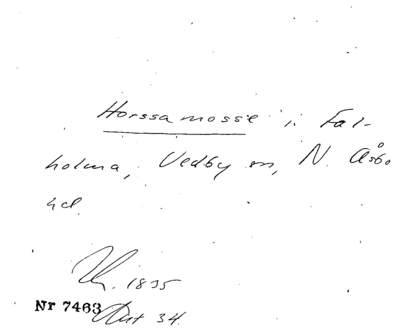 Horssamosse i Fal-
holma, Vedby sn, N. Åsbo
hd.
1835
Nr 7463 Akt 34.